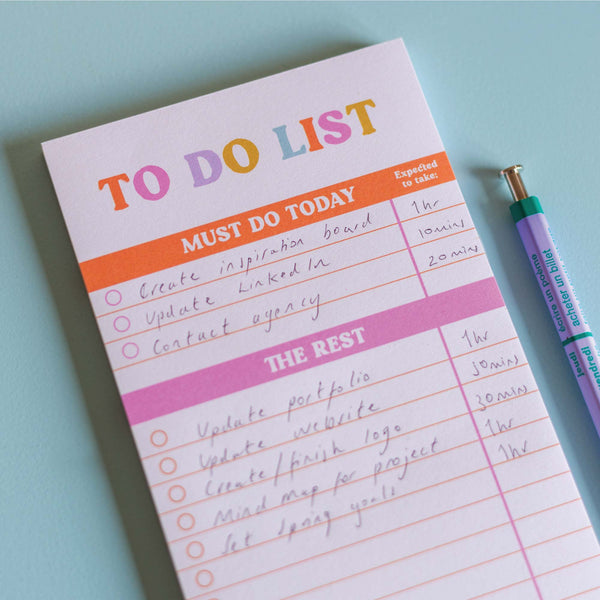 TO DO LIST
MUST DO TODAY Expected to take:
Create inspiration board 1hr
Update LinkedIn 10mins
Contact agency 20mins
THE REST
Update portfolio 1hr
Update website 30mins
Create/finish logo 30mins
Mind map for project 1hr
Set spring goals 1hr
jeudi écrire un poème
vendredi acheter un billet